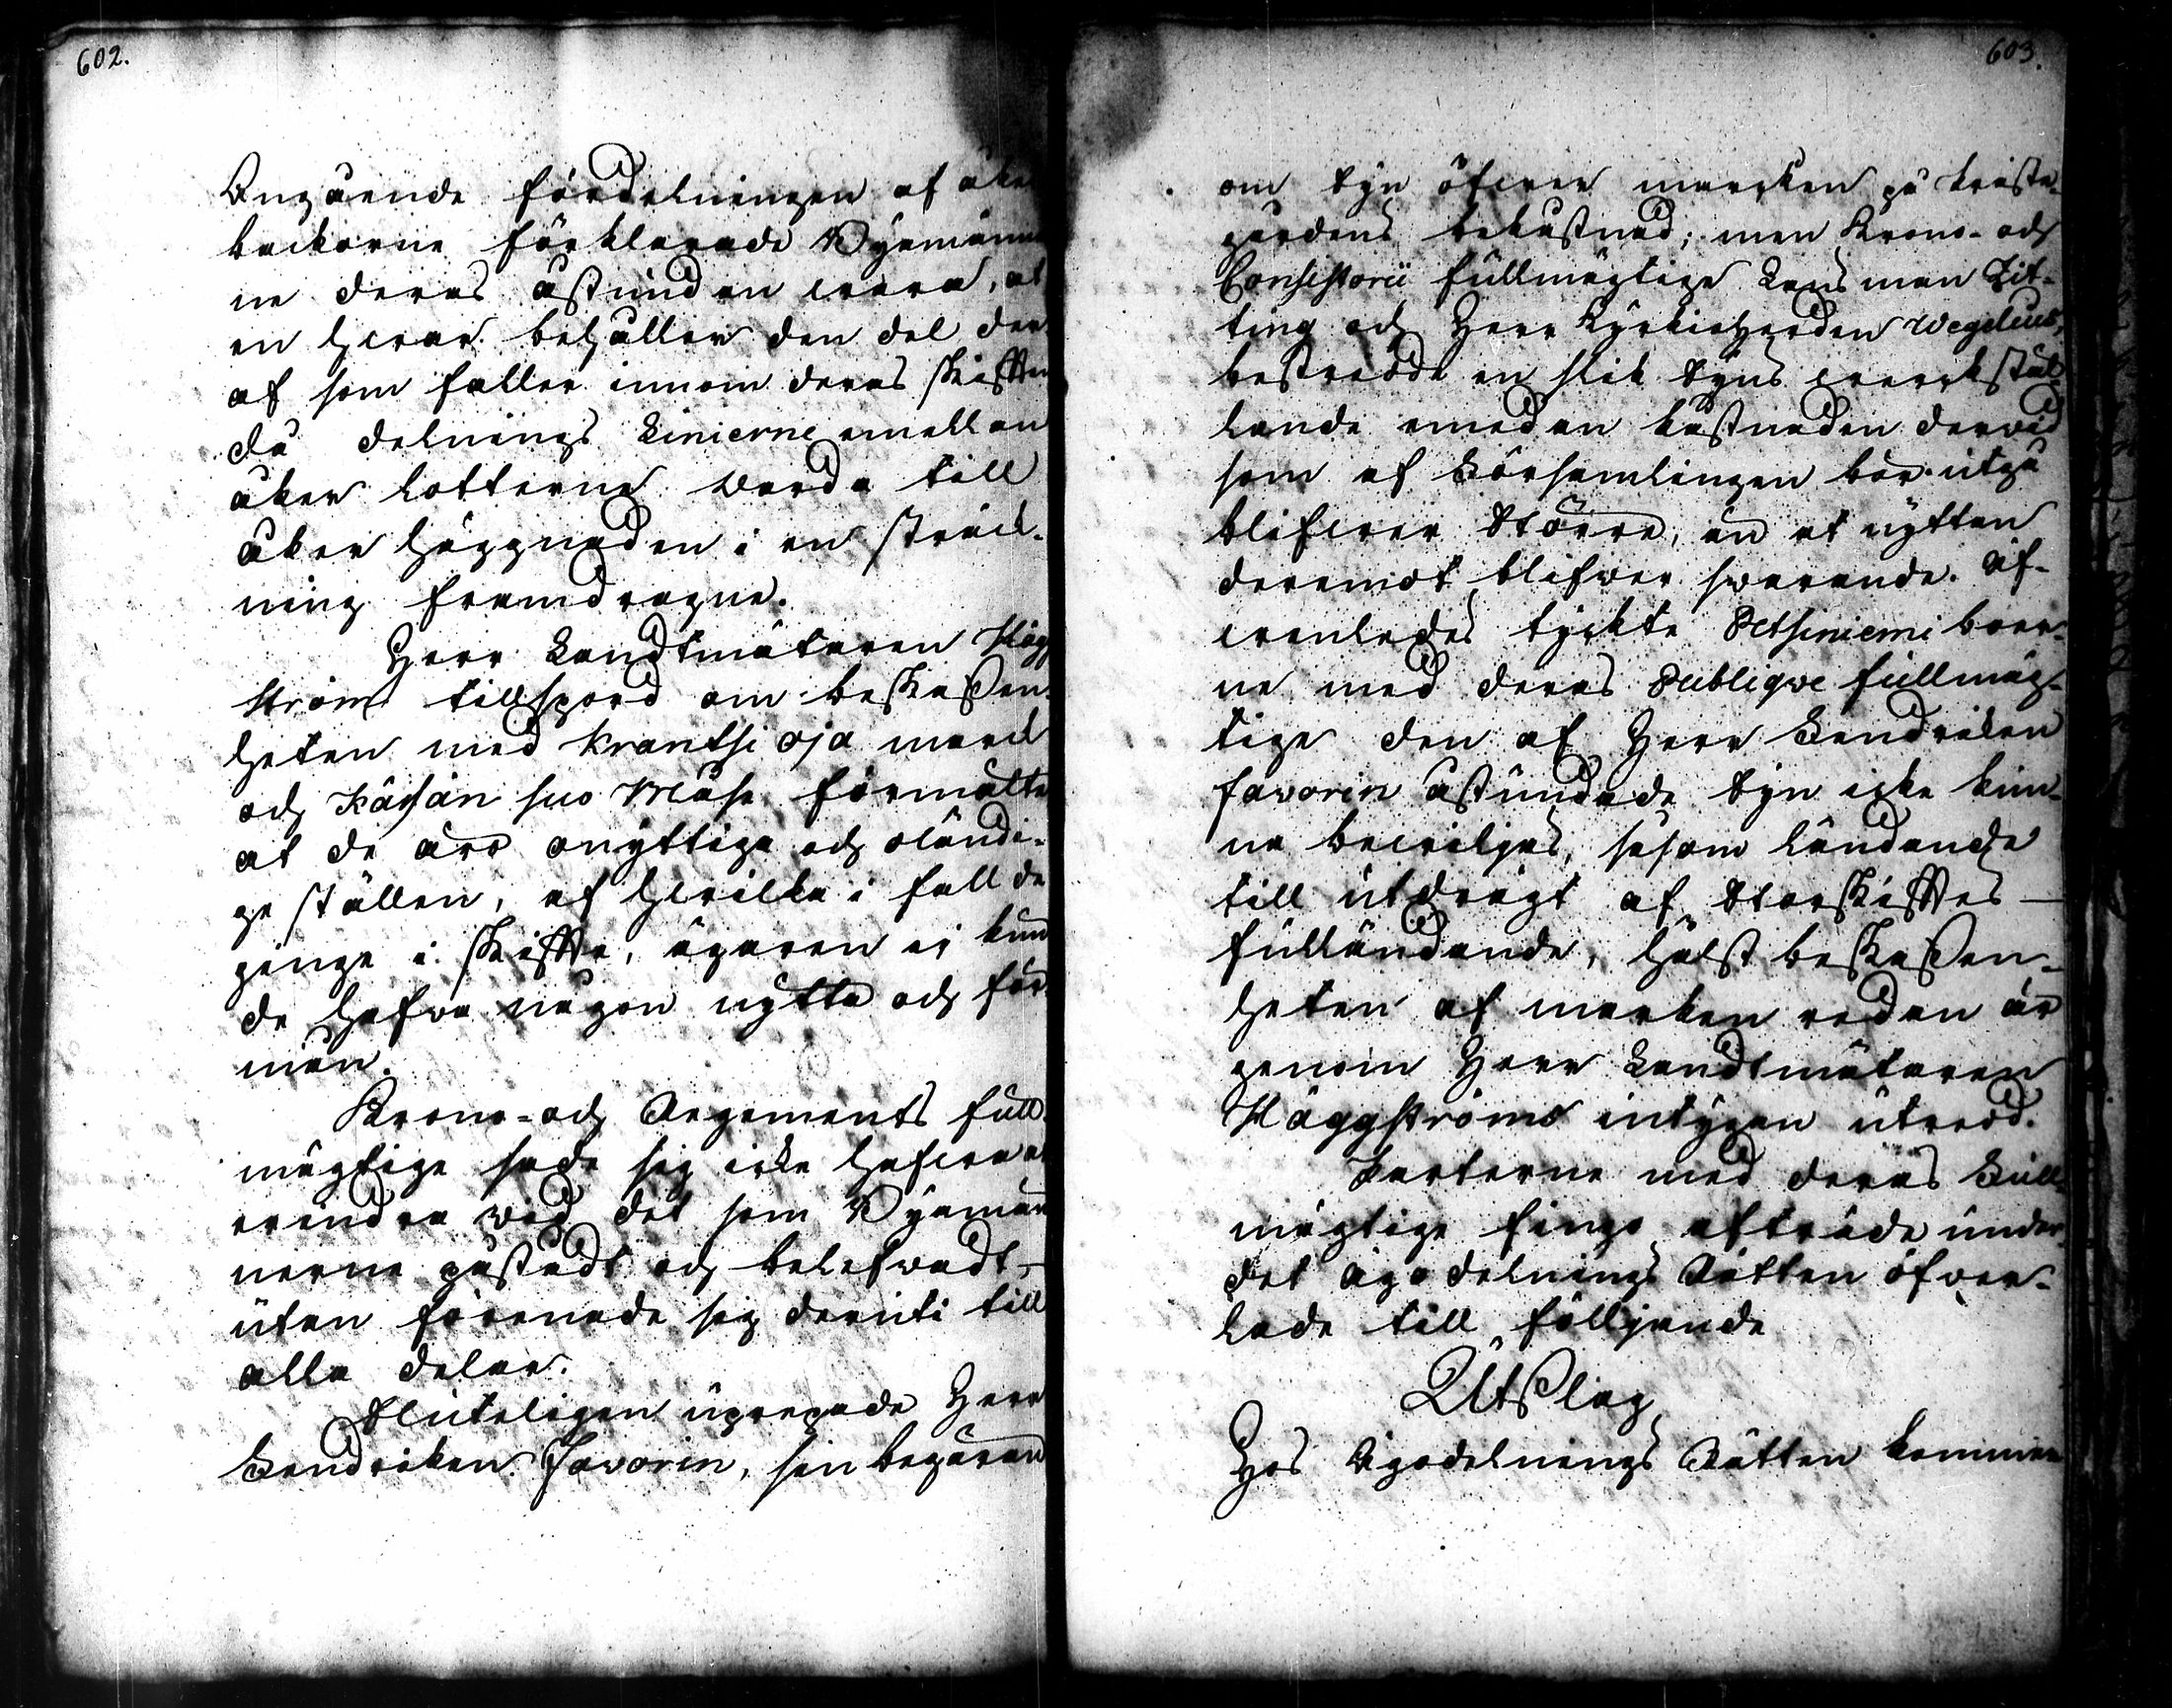 602.
Angående fördelningen af åker
backorne förklarade Byamänne
ne deras åstundan wara, at
en hwar behåller den del der
af som faller innom deras skiften
då delnings Linierne emellan
åker lotterne warda till
åker häggnaden i en sträck-
ning framdragne.
Herr Landtmätaren Hägg
ström tillspord om beskaffen-
heten med Krantsi oja marck
och Kärsän suo Måse förmälte
at de äro onyttige och oländi-
ge ställen, af hwilka i fall de
ginge i skifte, ägaren ej kun
de hafwa någon nytta och för-
mån.
Krono- och Regements full
mägtige sade sig icke hafwa at
erindra wid det som Byamän
nerne påstådt och belefwadt-
utan förenade sig deruti till
alla delar.
Sluteligen uprepade Herr
Lendriken Favorin, sin begäran
603.
om syn öfwer marcken på Prästa-
gårdens bekåstnad; men Krono- och
Consistorii fullmägtige Länsman Zit-
ting och Herr Kyrkioherden Wegelius,
bestredde en slik Syns werckstäl-
lande emedan kåstnaden derwid
som af Församlingen bör utgå
blifwer större, än at nyttan
deremot blifwer swarande. Äf-
wenledes tyckte Petsiniemi boer-
ne med deras Publiqve fullmäg-
tige den af Herr Lendriken
Favorin åstundade Syn icke kun-
na bewiljas, såsom ländande
till utdrägt af Storskiftes
fulländande, hälst beskaffen-
heten af marken redan är
genom Herr Landtmätaren
Häggströms intygan utredd.
Parterne med deras Full-
mägtige fingo afträde under
det Ägodelnings Rätten öfwer-
lade till följande
Utslag
Hos Ägodelnings Rätten kommer